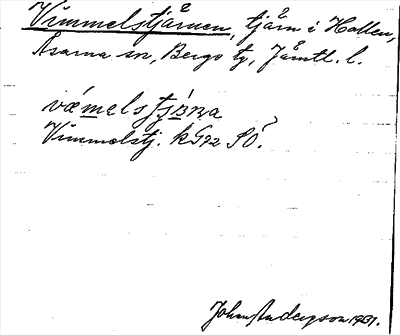 Vimmelstjärnen, tjärn i Hallen,
Åsarna sn, Bergs tg, Jämtl. l.
væmelstjɜ̣ṇa
Vimmelstj. kG72 SÖ.
John Andersson 1931.